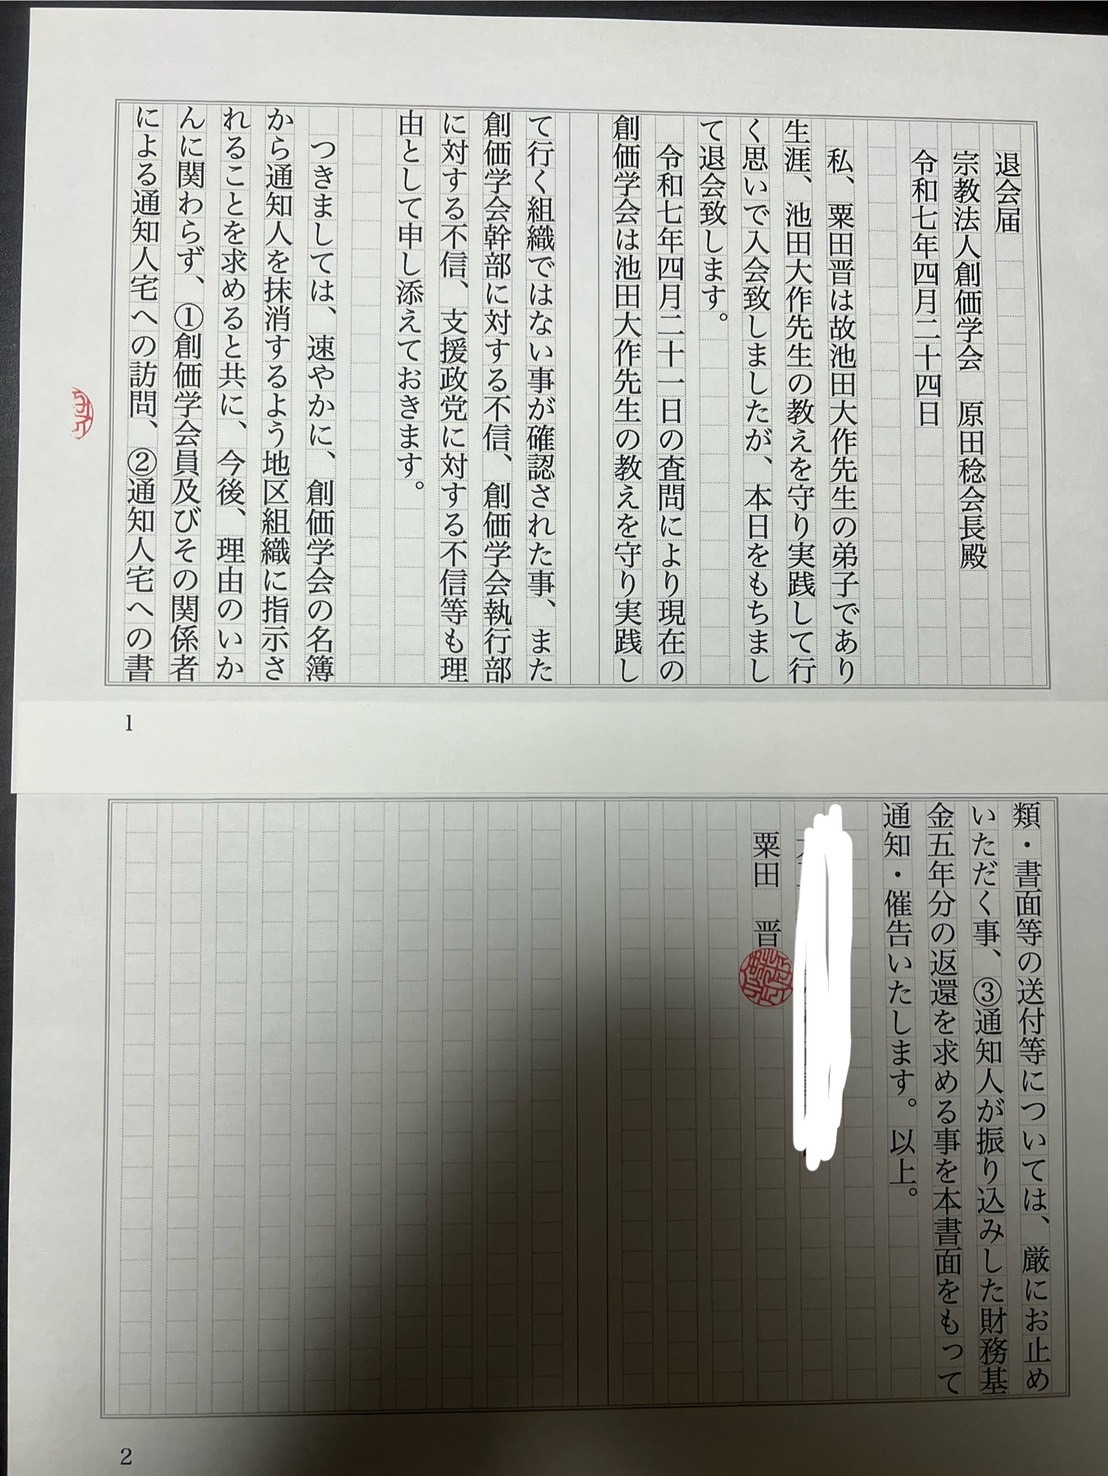 退会届
宗教法人創価学会　原田稔会長殿
令和七年四月二十四日
私、粟田晋は故池田大作先生の弟子であり
生涯、池田大作先生の教えを守り実践して行
く思いで入会致しましたが、本日をもちまし
て退会致します。
令和七年四月二十一日の査問により現在の
創価学会は池田大作先生の教えを守り実践し
て行く組織ではない事が確認された事、また
創価学会幹部に対する不信、創価学会執行部
に対する不信、支援政党に対する不信等も理
由として申し添えておきます。
つきましては、速やかに、創価学会の名簿
から通知人を抹消するよう地区組織に指示さ
れることを求めると共に、今後、理由のいか
んに関わらず、①創価学会員及びその関係者
による通知人宅への訪問、②通知人宅への書
1
類・書面等の送付等については、厳にお止め
いただく事、③通知人が振り込みした財務基
金五年分の返還を求める事を本書面をもって
通知・催告いたします。以上。
粟田　晋
2